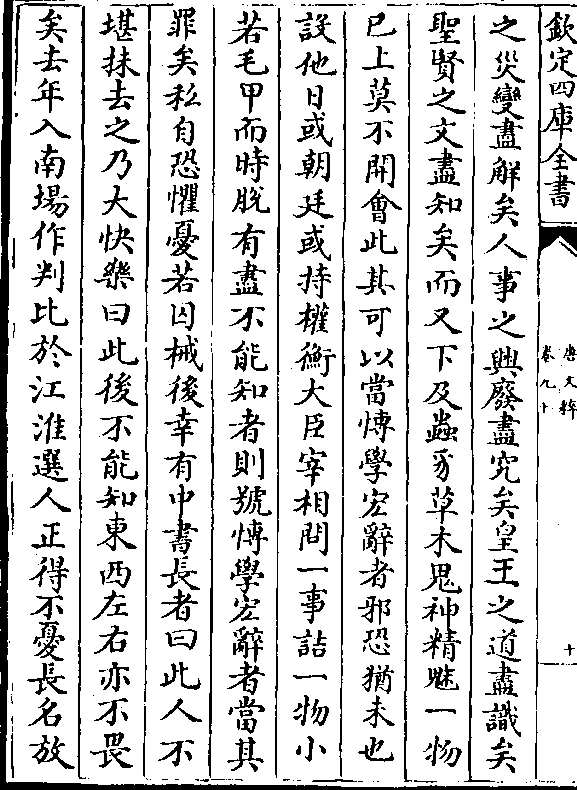 欽定四庫全書
唐文粹
卷九十
十
之災變盡解矣人事之興廢盡究矣皇王之道盡識矣
聖賢之文盡知矣而又下及蟲豸草木鬼神精魅一物
已上莫不開會此其可以當愽學宏辭者邪恐猶未也
設他日或朝廷或持權衡大臣宰相問一事詰一物小
若毛甲而時脱有盡不能知者則號愽學宏辭者當其
罪矣私自恐懼憂若囚械後幸有中書長者曰此人不
堪抹去之乃大快樂曰此後不能知東西左右亦不畏
矣去年入南場作判比於江淮選人正得不憂長名放